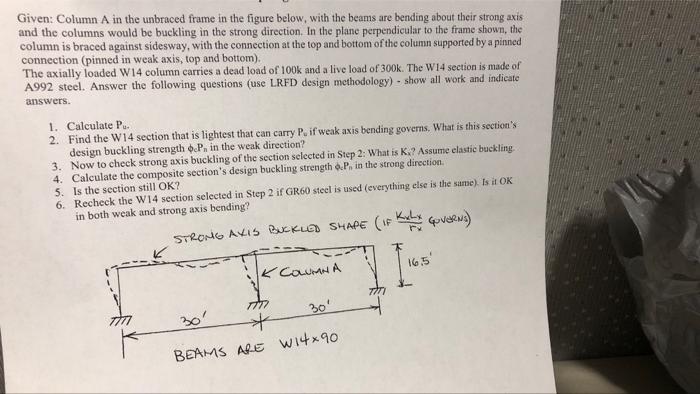 Given: Column A in the unbraced frame in the figure below, with the beams are bending about their strong axis
and the columns would be buckling in the strong direction. In the plane perpendicular to the frame shown, the
column is braced against sidesway, with the connection at the top and bottom of the column supported by a pinned
connection (pinned in weak axis, top and bottom).
The axially loaded W14 column carries a dead load of 100k and a live load of 300k. The W14 section is made of
A992 steel. Answer the following questions (use LRFD design methodology) - show all work and indicate
answers.
1. Calculate Pu.
2. Find the W14 section that is lightest that can carry Pu if weak axis bending governs. What is this section's
design buckling strength ϕcPn in the weak direction?
3. Now to check strong axis buckling of the section selected in Step 2: What is Kx? Assume elastic buckling.
4. Calculate the composite section's design buckling strength ϕcPn in the strong direction.
5. Is the section still OK?
6. Recheck the W14 section selected in Step 2 if GR60 steel is used (everything else is the same). Is it OK
in both weak and strong axis bending?
STRONG AXIS BUCKLED SHAPE (IF KxLx/rx GOVERNS)
COLUMN A
16.5'
30'
30'
BEAMS ARE W14x90